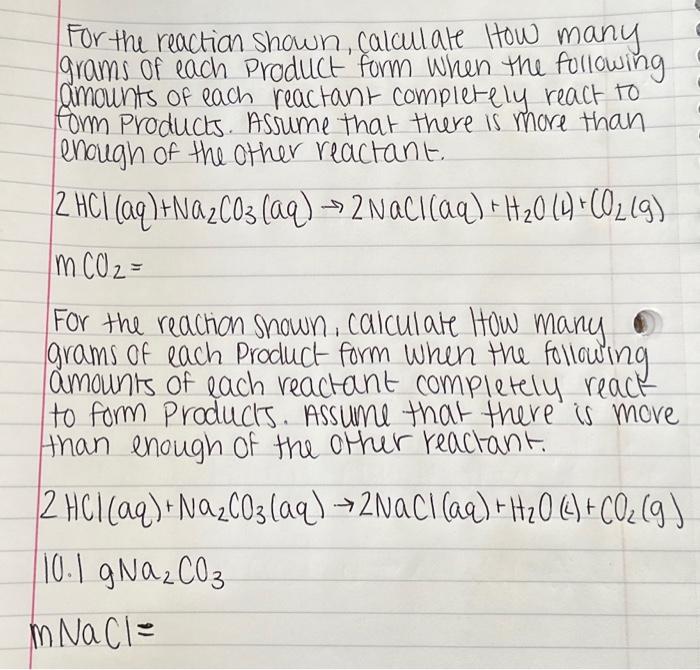 For the reaction shown, calculate How many
grams of each Product form when the following
amounts of each reactant completely react to
form Products. Assume that there is more than
enough of the other reactant.
2 HCl (aq) + Na2CO3 (aq) → 2 NaCl (aq) + H2O (L) + CO2 (g)
m CO2 =
For the reaction shown, calculate How many
grams of each Product form when the following
amounts of each reactant completely react
to form Products. Assume that there is more
than enough of the other reactant.
2 HCl (aq) + Na2CO3 (aq) → 2NaCl (aq) + H2O (L) + CO2 (g)
10.1 g Na2CO3
m NaCl =